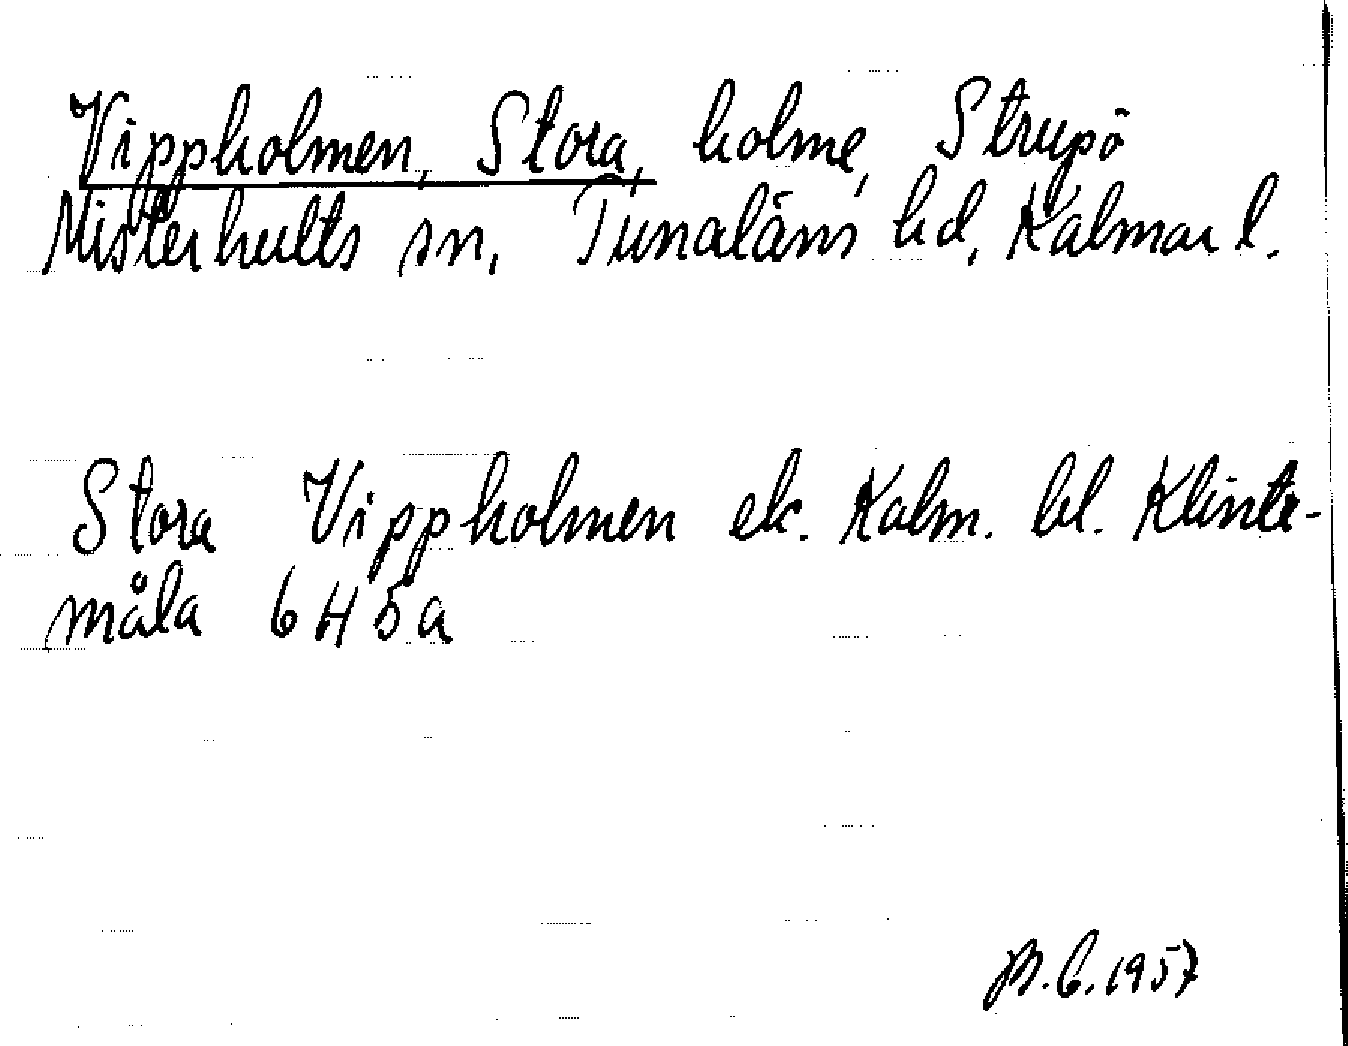 Vippholmen, Stora, holme, Strupö
Misterhults sn, Tunaläns hd, Kalmar l.
Stora Vippholmen ek. Kalm. bl. Klinte-
måla 6H5a
1957